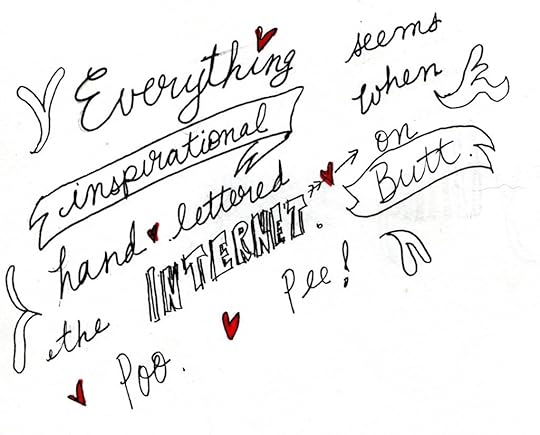 Everything seems
inspirational when
hand lettered on
the INTERNET. Butt.
Poo. Pee!